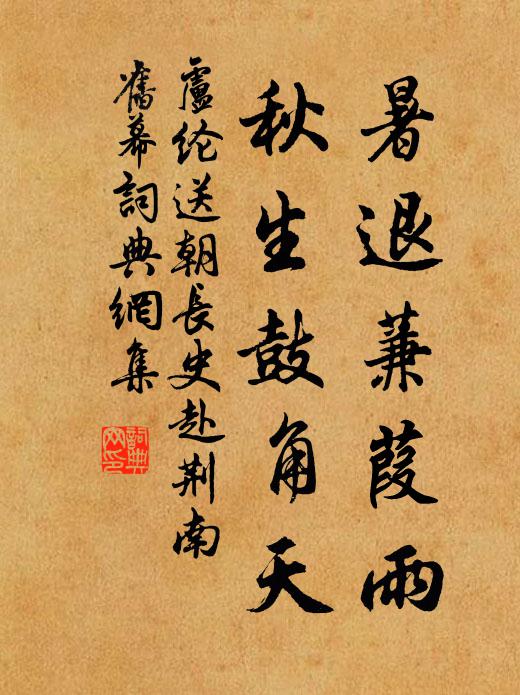 暑退蒹葭雨
秋生鼓角天
盧纶送朝長史赴荆南
舊幕詞典網集
詞典
网印